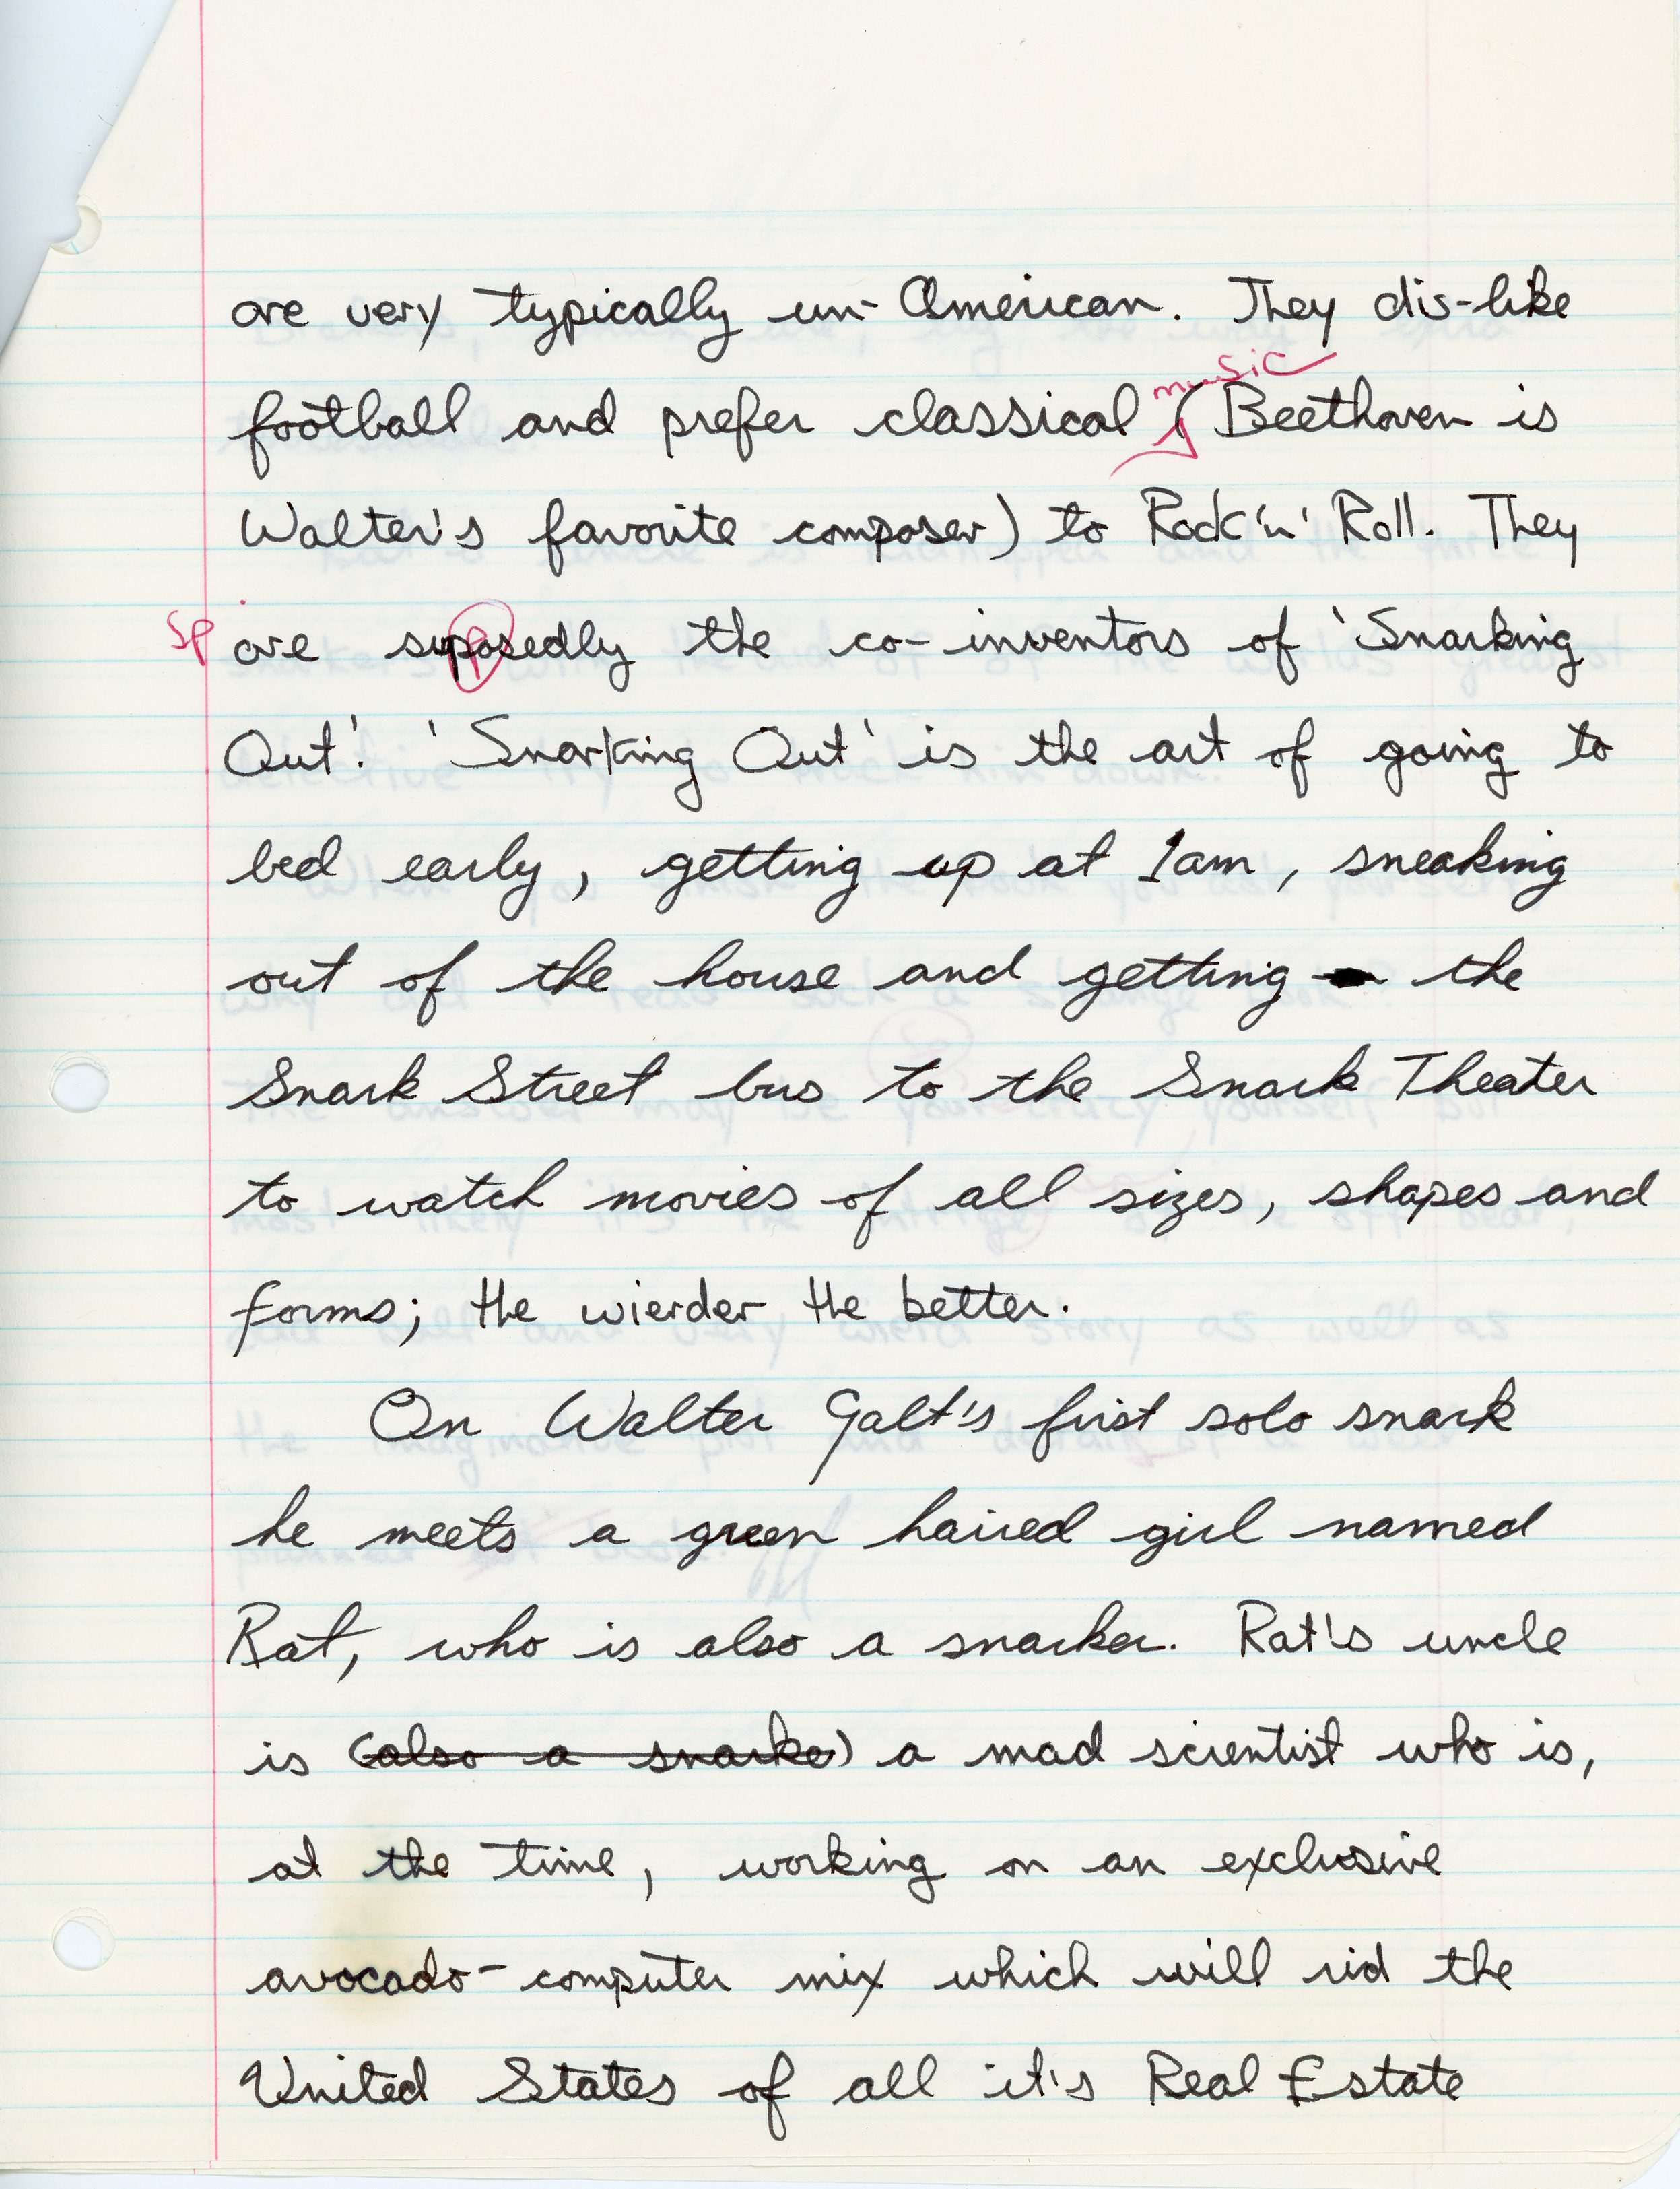 are very typically un-American. They dis-like
music
football and prefer classical (Beethoven is
Walter's favorite composer) to Rock 'n' Roll. They
sp are suposedly the co-inventors of 'Snarking
Out'. 'Snarking Out' is the art of going to
bed early, getting up at 1am, sneaking
out of the house and getting the
Snark Street bus to the Snark Theater
to watch movies of all sizes, shapes and
forms; the wierder the better.
On Walter Galt's first solo snark
he meets a green haired girl named
Rat, who is also a snarker. Rat's uncle
is (also a snarker) a mad scientist who is,
at the time, working on an exclusive
avocado-computer mix which will rid the
United States of all it's Real Estate